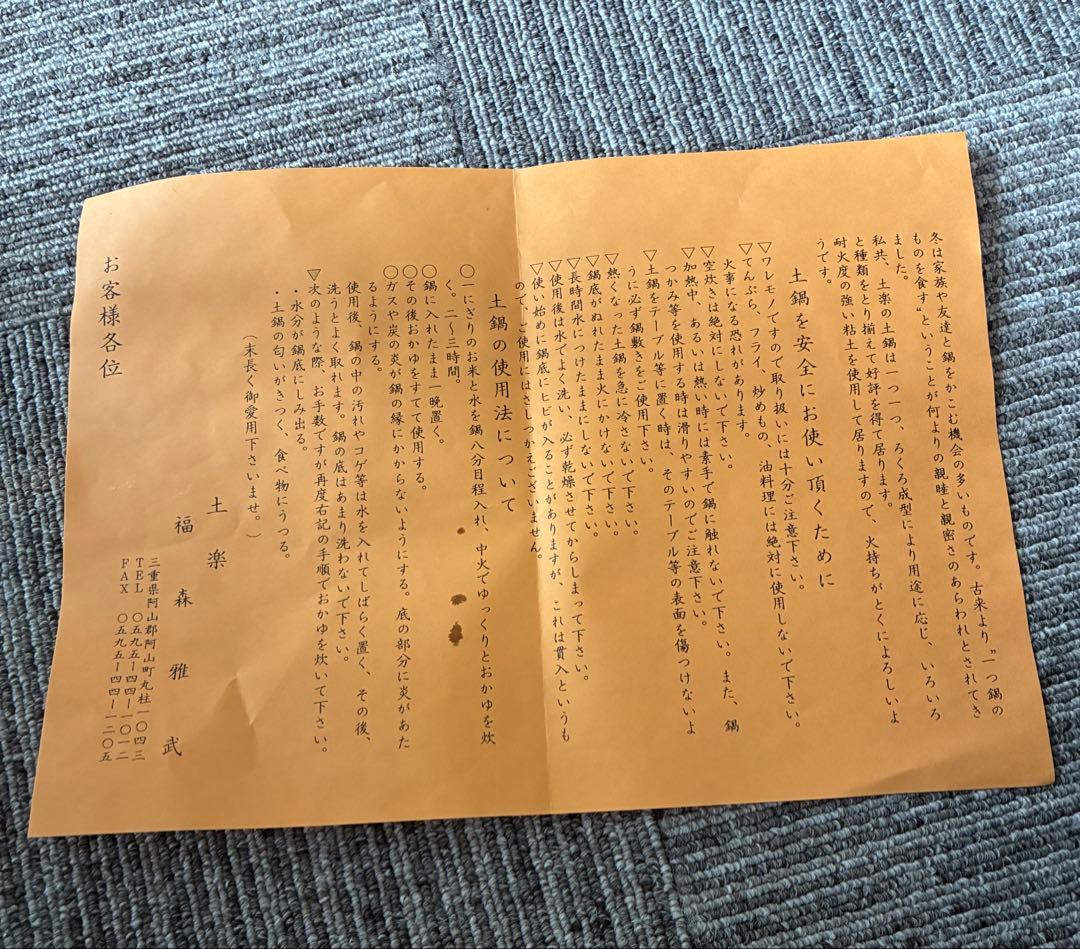 冬は家族や友達と鍋をかこむ機会の多いものです。古来より〝一つ鍋の
ものを食す〟ということが何よりの親睦と親密さのあらわれとされてき
ました。
私共、土楽の土鍋は一つ一つ、ろくろ成型により用途に応じ、いろいろ
と種類をとり揃えて好評を得て居ります。
耐火度の強い粘土を使用して居りますので、火持ちがとくによろしいよ
うです。
土鍋を安全にお使い頂くために
▽ワレモノですので取り扱いには十分ご注意下さい。
▽てんぷら、フライ、炒めもの、油料理には絶対に使用しないで下さい。
火事になる恐れがあります。
▽空炊きは絶対にしないで下さい。
▽加熱中、あるいは熱い時には素手で鍋に触れないで下さい。また、鍋
つかみ等を使用する時は滑りやすいのでご注意下さい。
▽土鍋をテーブル等に置く時は、そのテーブル等の表面を傷つけないよ
うに必ず鍋敷きをご使用下さい。
▽熱くなった土鍋を急に冷さないで下さい。
▽鍋底がぬれたまま火にかけないで下さい。
▽長時間水につけたままにしないで下さい。
▽使用後は水でよく洗い、必ず乾燥させてからしまって下さい。
▽使い始めに鍋底にヒビが入ることがありますが、これは貫入というも
ので、ご使用にはさしつかえございません。
土鍋の使用法について
○一にぎりのお米と水を鍋八分目程入れ、中火でゆっくりとおかゆを炊
く。二〜三時間。
○鍋に入れたまま一晩置く。
○その後おかゆをすてて使用する。
○ガスや炭の炎が鍋の縁にかからないようにする。底の部分に炎があた
るようにする。
使用後、鍋の中の汚れやコゲ等は水を入れてしばらく置く、その後、
洗うとよく取れます。鍋の底はあまり洗わないで下さい。
▽次のような際、お手数ですが再度右記の手順でおかゆを炊いて下さい。
・水分が鍋底にしみ出る。
・土鍋の匂いがきつく、食べ物にうつる。
（末長く御愛用下さいませ。）
土楽
福森雅武
三重県阿山郡阿山町丸柱一〇四三
TEL 〇五九五ー四四ー一〇一二
FAX 〇五九五ー四四ー一二〇五
お客様各位